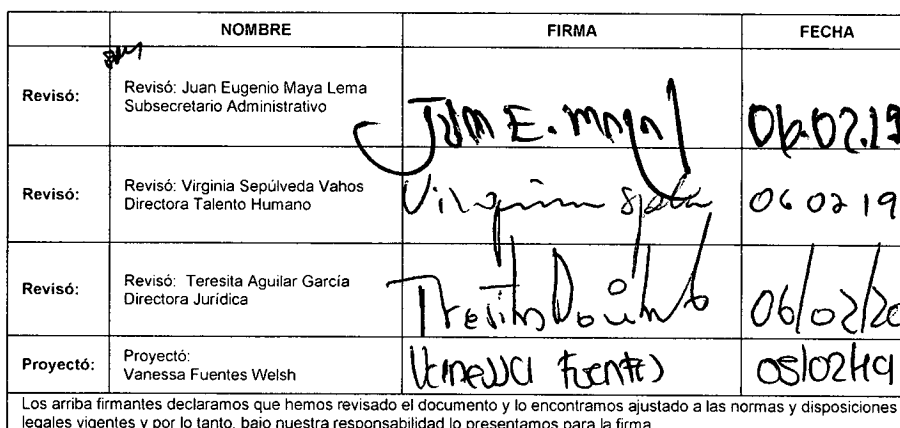 NOMBRE FIRMA FECHA
Revisó: Revisó: Juan Eugenio Maya Lema
Subsecretario Administrativo
Juan E. Maya 06.02.19
Revisó: Revisó: Virginia Sepúlveda Vahos
Directora Talento Humano
Virginia 06 02 19
Revisó: Revisó: Teresita Aguilar García
Directora Jurídica
Teresita 06/02/20
Proyectó: Proyectó:
Vanessa Fuentes Welsh
Vanessa Fuentes 05/02/19
Los arriba firmantes declaramos que hemos revisado el documento y lo encontramos ajustado a las normas y disposiciones
legales vigentes y por lo tanto, bajo nuestra responsabilidad lo presentamos para la firma.